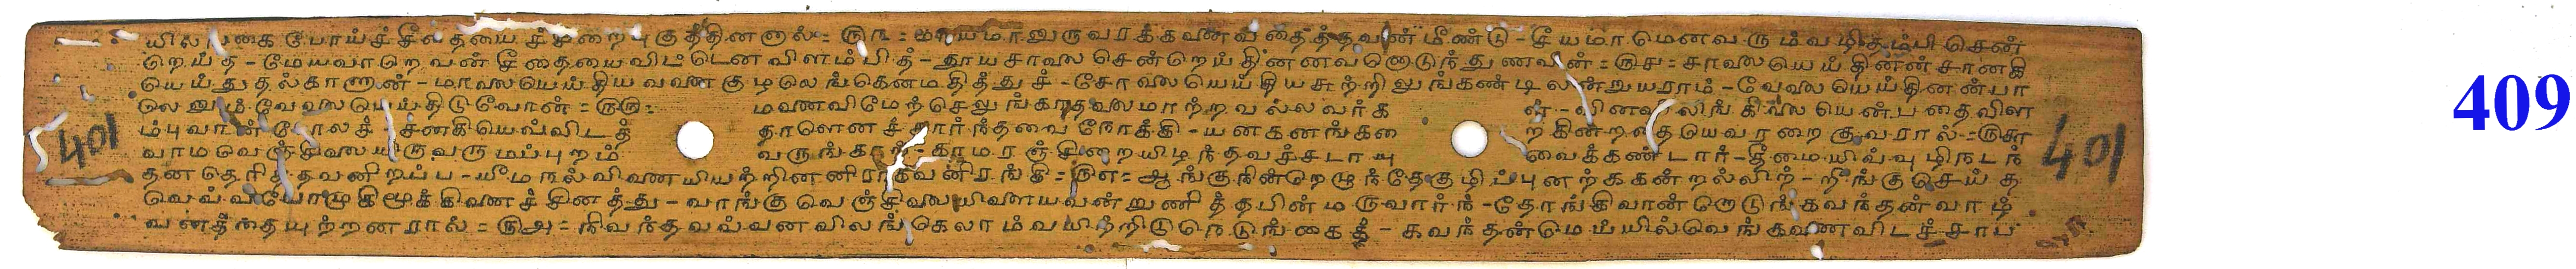 யிலங்கை போய்ச்சீதையைச்சிறைபுகுத்தினனால்=௫௩=மாயமானுருவரக்கனை வதைத்தவன்மீண்டு-சீயமாமெனவரும்வழிதம்பிசென்
றெய்த-மேயவாறெவன்சீதையைவிட்டெனவிளம்பித்-தூயசாலைசென்றெய்தினனவனொடுந்துணைவன்=௫௪=சாலையெய்தினன்சானகி
யெய்துதல்காணான்-மாலையெய்தியவவன்குழலெங்கெனமதித்துச்-சோலையெய்தியசுற்றிலுங்கண்டிலன்றுயராம்-வேலையெய்தினன்பா
லெனும்வேலையெய்திடுவோன்=௫௫= மலைவிமேற்செலுங்காதலமாற்றவல்லவர்க ள்-வினவலிங்கிலையென்பதைவிள
ம்புவான்போலச் சனகியெவ்விடத் தாளெனச்சார்ந்தவைநோக்கி-யனகனங்கறை ற கின்றதையெவரறைகுவரால்=௫௬
வாமவெஞ்சிலையிருவருமப்புறம் வருங்கால்-காமரஞ்சிறையிழந்தவச்சடாயு வைக்கண்டார்-தீமையிவ்வுழிநடந்
தனதெரித்தவனிறப்ப-யீமநல்வினையியற்றினனிராகவனிரங்கி=௫௭=ஆங்குநின்றெழுந்தேகுழிப்புனற்ககன்றல்லிற்-றீங்குசெய்த
வெவ்வயோமுகிமூக்கினைச்சினத்து-வாங்குவெஞ்சிலையிளையவன்றுணித்தபின்மருவார்ந்-தோங்கிவான்றொடுங்கவந்தன்வாழ்
வனத்தையுற்றனரால்=௫௮=நிவந்தவவ்வனவிலங்கெலாம்வயிற்றிடுநெடுங்கைத்-கவந்தன்மெய்யில்வெங்கணைவிடச்சாப
401
401
409